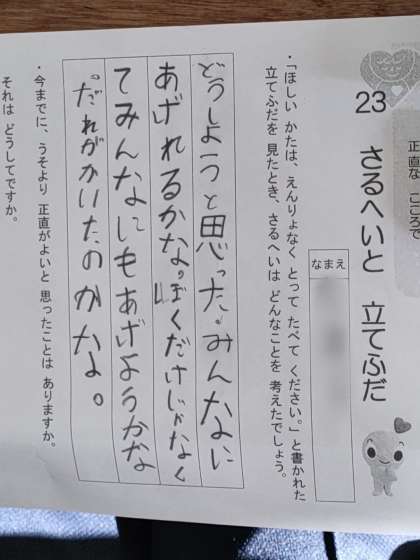 正直な こころで
23 さるへいと 立てふだ
なまえ
・「ほしい かたは、えんりょなく とって たべて ください。」と書かれた
立てふだを 見たとき、さるへいは どんなことを 考えたでしょう。
どうしようと思った。みんなに
あげれるかな。ぼくだけじゃなく
てみんなにもあげようかな
。だれがかいたのかな。
・今までに、うそより 正直がよいと 思ったことは ありますか。
それは どうしてですか。